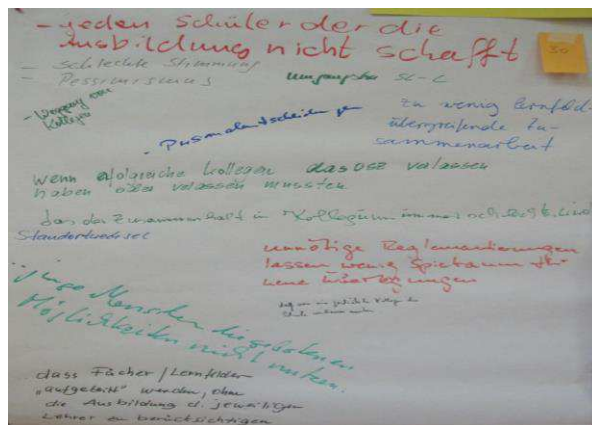 - jeden Schüler der die
Ausbildung nicht schafft
30
- schlechte Stimmung
- Pessimismus
Umgangston SL-L
- Weggang von
Kollegen
- Personalentscheidungen
zu wenig lernfeld-
übergreifende Zu-
sammenarbeit
wenn erfolgreiche Kollegen das OSZ verlassen
haben oder verlassen mussten.
das der Zusammenhalt im Kollegium immer schlechter wird
Standortwechsel
unnötige Reglementierungen
lassen wenig Spielraum für
neue Überlegungen
junge Menschen die gebotenen
Möglichkeiten nicht nutzen.
dass Fächer/Lernfelder
"aufgeteilt" werden, ohne
die Ausbildung d. jeweiligen
Lehrer zu berücksichtigen